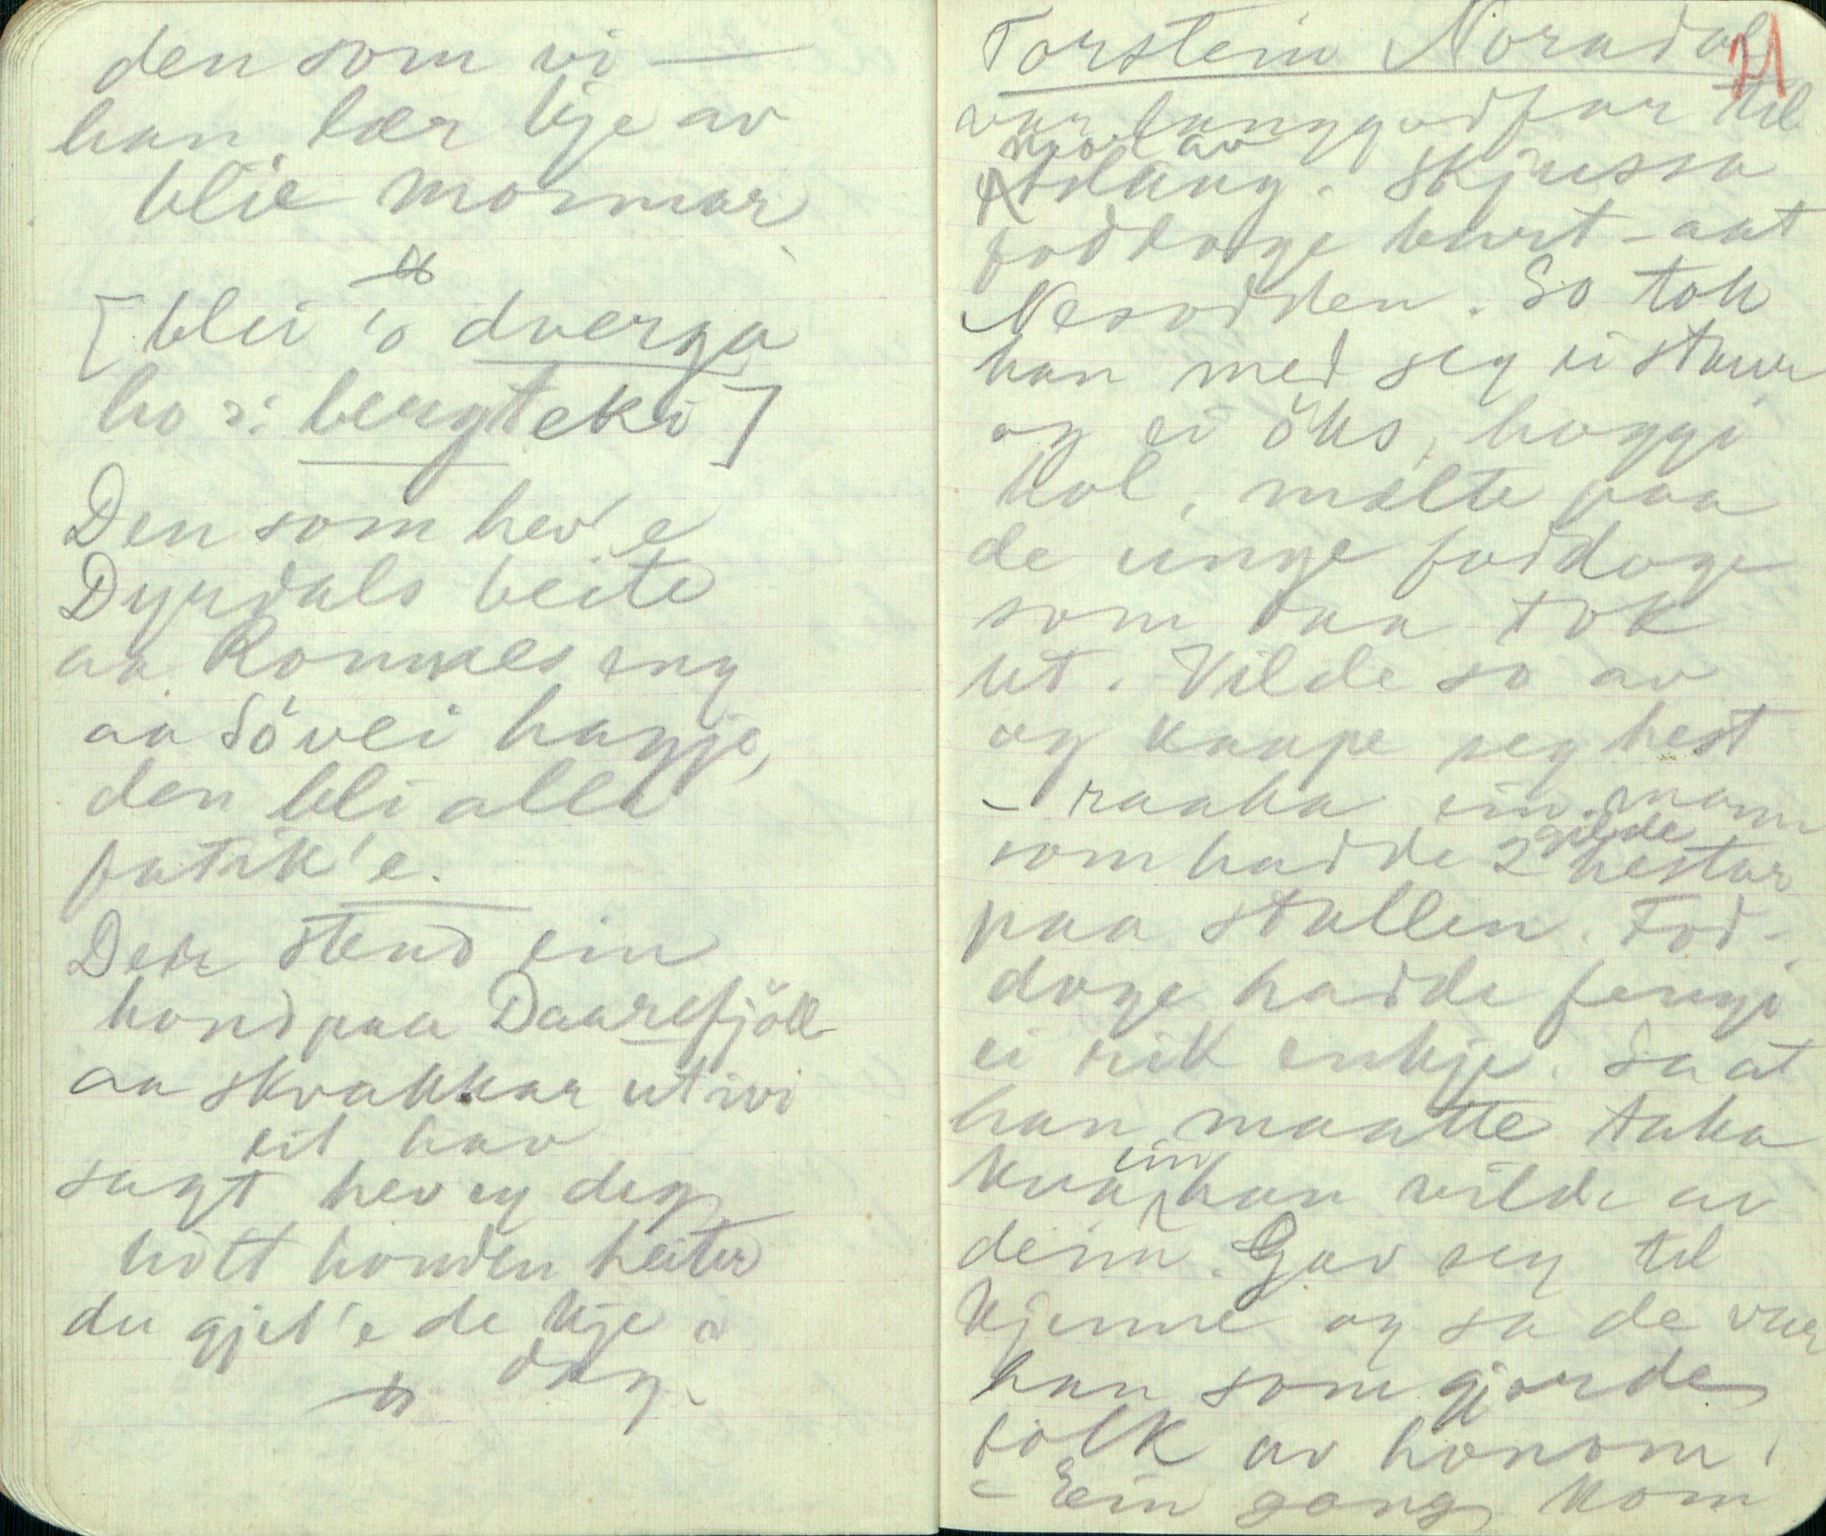 den som vi —
han lær kje av
blie mormor
[blei 'o dverga
ho ɔ: bergteki]
Den som hev' e
Dyrdals beite
aa Rommes eng
aa Sövei hagje,
den bli alle
fatik'e.
Der stend ein
hond paa Daarefjöll
aa skvakkar utivi
eit hav
sagt hev eg deg
hott honden heiter
du gjet'e de kje i
dag.
Torstein Noradal
21
var langgodfar til
Aslaug. Skjussa
foddoge burt - aat
Nesodden. So tok
han med seg ei staur
og ei öks, hoggi
hol, mælte paa
de unge foddoge
som daa tok
ut. Vilde so av
og kaupe seg hest
- raaka ein mann
som hadde 2 gilde hestar
paa stallen. Fod-
doge hadde fengi
ei rik enkje. Sa at
han maatte taka
kva ein han vilde av
deim. Gav seg til
kjenne og sa de var
han som gjorde
folk av honom.
- Ein gong kom